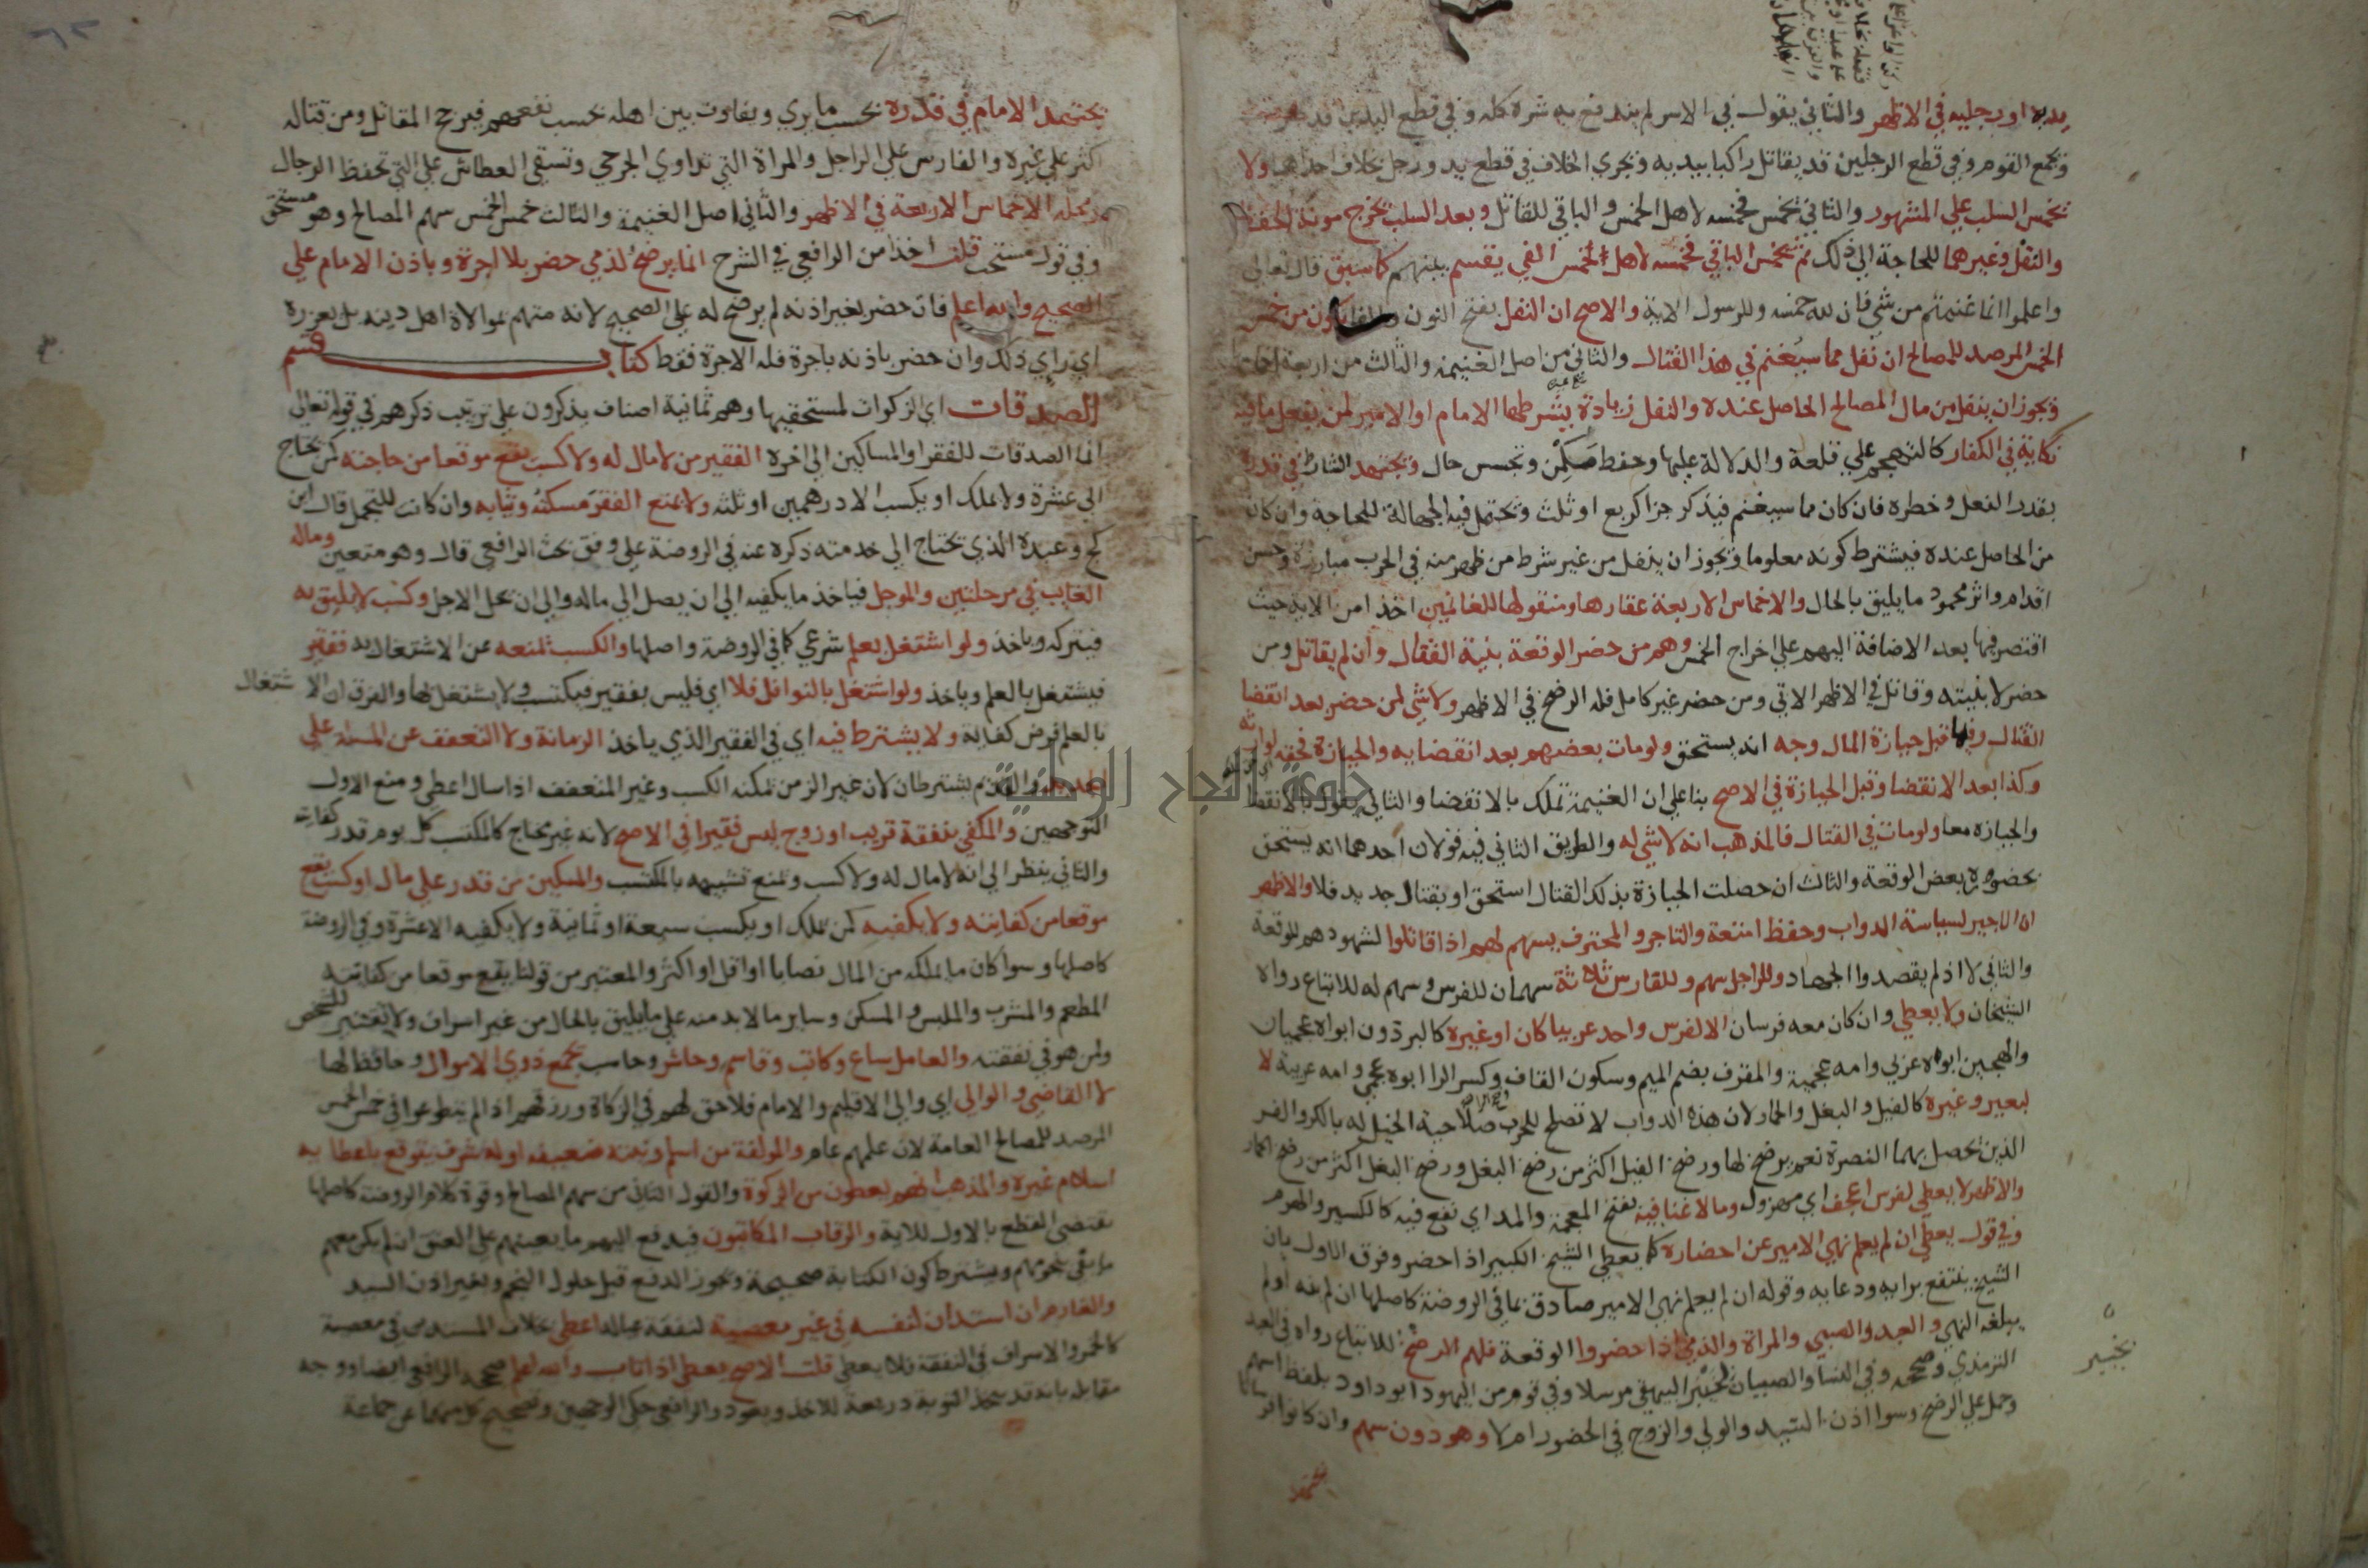 يديه او رجليه في الاظهر والثاني يقول في الاسر لم يندفع به شره كله وفي قطع اليدين قد
ويجمع القوم وفي قطع الرجلين قد يقاتل راكبا بيديه ويجري الخلاف في قطع يد ورجل بخلاف احداهما ولا
يخمس السلب علي المشهور والثاني يخمس فخمسه لاهل الخمس والباقي للقاتل وبعد السلب تخرج مونة الحفظ
والنقل وغيرهما للحاجة الي ذلك ثم يخمس الباقي فخمسه لاهل خمس الفي يقسم بينهم كما سبق قال تعالي
واعلموا انما غنمتم من شي فان لله خمسه وللرسول الاية والاصح ان النفل بفتح النون والفا يكون من خمس
الخمس المرصد للمصالح ان نفل مما سيغنم في هذا القتال والثاني من اصل الغنيمة والثالث من اربعة اخماسها
ويجوز ان ينفل من مال المصالح الحاصل عنده والنفل زيادة يشرطها الامام او الامير لمن يفعل ما فيه
نكاية في الكفار كالتهجم علي قلعة والدلالة عليها وحفظ مكمن وتجسس حال ويجتهد الشارط في قدره
بقدر الفعل وخطره فان كان مما سيغنم فيذكر جزا كربع او ثلث وتحتمل فيه الجهالة للحاجة وان كان
من الحاصل عنده فيشترط كونه معلوما ويجوز ان ينفل من غير شرط من ظهر منه في الحرب مبارزة وحسن
اقدام واثر محمود ما يليق بالحال والاخماس الاربعة عقارها ومنقولها للغانمين اخذا من الاية حيث
اقتصر فيها بعد الاضافة اليهم علي اخراج الخمس وهم من حضر الوقعة بنية القتال وان لم يقاتل ومن
حضر لا بنيته وقاتل في الاظهر الاتي ومن حضر غير كامل فله الرضخ في الاظهر ولا شي لمن حضر بعد انقضا
القتال وفيما قبل حيازة المال وجه انه يستحق ولو مات بعضهم بعد انقضايه والحيازة فحقه لوارثه
وكذا بعد الانقضا وقبل الحيازة في الاصح بنا علي ان الغنيمة تملك بالانقضا والثاني يقول بالانقضا
والحيازه معا ولو مات في القتال فالمذهب انه لا شي له والطريق الثاني فيه قولان احدهما انه يستحق
بحضوره بعض الوقعة والثالث ان حصلت الحيازة بذلك القتال استحق او بقتال جديد فلا والاظهر
ان الاجير لسياسة الدواب وحفظ امتعة والتاجر والمحترف يسهم لهم اذا قاتلوا لشهودهم للوقعة
والثاني لا اذ لم يقصدوا الجهاد وللراجل سهم وللفارس ثلاثة سهمان للفرس وسهم له للاتباع رواه
الشيخان ولا يعطي وان كان معه فرسان الا لفرس واحد عربيا كان او غيره كالبرذون ابواه عجميان
والهجين ابوه عربي وامه عجمية والمقرف بضم الميم وسكون القاف وكسر الرا ابوه عجمي وامه عربية لا
لبعير وغيره كالفيل والبغل والحمار لان هذه الدواب لا تصلح للحرب صلاحية الخيل له بالكر والفر
الذين يحصل بهما النصرة نعم يرضخ لها ورضخ الفيل اكثر من رضخ البغل ورضخ البغل اكثر من رضخ الحمار
والاظهر لا يعطي لفرس اعجف اي مهزول وما لا غنا فيه بفتح المعجمة والمد اي نفع فيه كالكسير والهرم
وفي قول يعطي ان لم يعلم نهي الامير عن احضاره كما يعطي الشيخ الكبير اذا حضر وفرق الاول بان
الشيخ ينتفع برايه ودعايه وقوله ان لم يعلم نهي الامير صادق بما في الروضة كاصلها ان لم ينه او لم
يبلغه النهي والعبد والصبي والمراة والذمي اذا حضروا الوقعة فلهم الرضخ للاتباع رواه في العبد
الترمذي وصححه وفي النسا والصبيان البيهقي مرسلا وفي قوم من اليهود ابو داود بلفظ اسهم
وحمل علي الرضخ وسوا اذن السيد والولي والزوج في الحضور ام لا وهو دون سهم وان كانوا
بخيبر
يجتهد
يجتهد الامام في قدره بحسب ما يري ويفاوت بين اهله بحسب نفعهم فيرجح المقاتل ومن قتاله
اكثر علي غيره والفارس علي الراجل والمراة التي تداوي الجرحي وتسقي العطاش علي التي تحفظ الرحال
ومحله الاخماس الاربعة في الاظهر والثاني اصل الغنيمة والثالث خمس الخمس سهم المصالح وهو مستحق
وفي قول مستحب قلت اخذا من الرافعي في الشرح انما يرضخ لذمي حضر بلا اجرة وباذن الامام علي
الصحيح والله اعلم فان حضر بغير اذنه لم يرضخ له علي الصحيح لانه متهم بموالاة اهل دينه بل يعزره
اي راي ذلك وان حضر باذنه باجرة فله الاجرة فقط كتاب قسم
الصدقات اي الزكوات لمستحقيها وهم ثمانية اصناف يذكرون علي ترتيب ذكرهم في قوله تعالي
انما الصدقات للفقرا والمساكين الي اخره الفقير من لا مال له ولا كسب يقع موقعا من حاجته كمن يحتاج
الي عشرة ولا يملك او يكسب الا درهمين او ثلثة ولا يمنع الفقر مسكنه وثيابه وان كانت للتجمل قال ابن
كج وعبده الذي يحتاج الي خدمته ذكره عنه في الروضة علي وفق بحث الرافعي قال وهو متعين وماله
الغايب في مرحلتين والموجل فياخذ ما يكفيه الي ان يصل الي ماله والي ان يحل الاجل وكسب لا يليق به
فيتركه وياخذ ولو اشتغل بعلم شرعي كما في الروضة واصلها والكسب يمنعه عن الاشتغال به ففقير
فيشتغل بالعلم وياخذ ولو اشتغل بالنوافل فلا اي فليس بفقير فيكتسب ولا يشتغل بها والفرق ان الاشتغال
بالعلم فرض كفاية ولا يشترط فيه اي في الفقير الذي ياخذ الزمانة ولا التعفف عن المسئلة علي
الجديد والقديم يشترطان لان غير الزمن يمكنه الكسب وغير المتعفف اذا سال اعطي ومنع الاول
التوجيهين والمكفي بنفقة قريب او زوج ليس فقيرا في الاصح لانه غير محتاج كالمكتسب كل يوم قدر كفايته
والثاني ينظر الي انه لا مال له ولا كسب ويمنع تشبيهه بالمكتسب والمسكين من قدر علي مال او كسب يقع
موقعا من كفايته ولا يكفيه كمن يملك او يكسب سبعة او ثمانية ولا يكفيه الا عشرة وفي الروضة
كاصلها وسوا كان ما يملكه من المال نصابا او اقل او اكثر والمعتبر من قولنا يقع موقعا من كفايته
المطعم والمشرب والملبس والمسكن وساير ما لا بد منه علي ما يليق بالحال من غير اسراف ولا تقتير للشخص
ولمن هو في نفقته والعامل ساع وكاتب وقاسم وحاشر وحاسب يجمع ذوي الاموال وحافظ لها
لا القاضي والوالي اي والي الاقليم والامام فلا حق لهم في الزكاة ورزقهم اذا لم يتطوعوا في خمس الخمس
المرصد للمصالح العامة لان عملهم عام والمولفة من اسلم ونيته ضعيفه او له شرف يتوقع باعطايه
اسلام غيره والمذهب انهم يعطون من الزكوة والقول الثاني من سهم المصالح وقوة كلام الروضة كاصلها
تقتضي القطع بالاول للاية والرقاب المكاتبون فيدفع اليهم ما يعينهم علي العتق ان لم يكن معهم
ما يفي بنجومهم ويشترط كون الكتابة صحيحة ويجوز الدفع قبل حلول النجم وبغير اذن السيد
والغارم ان استدان لنفسه في غير معصية لنفقة عياله اعطي بخلاف المستدين في معصية
كالخمر والاسراف في النفقة فلا يعطي قلت الاصح يعطي اذا تاب والله اعلم صححه الرافعي ايضا ووجه
مقابله بانه قد يتخذ التوبة ذريعة للاخذ ويعود والرافعي حكي الوجهين وتصحيح كل منهما عن جماعة
جامعة النجاح الوطنية